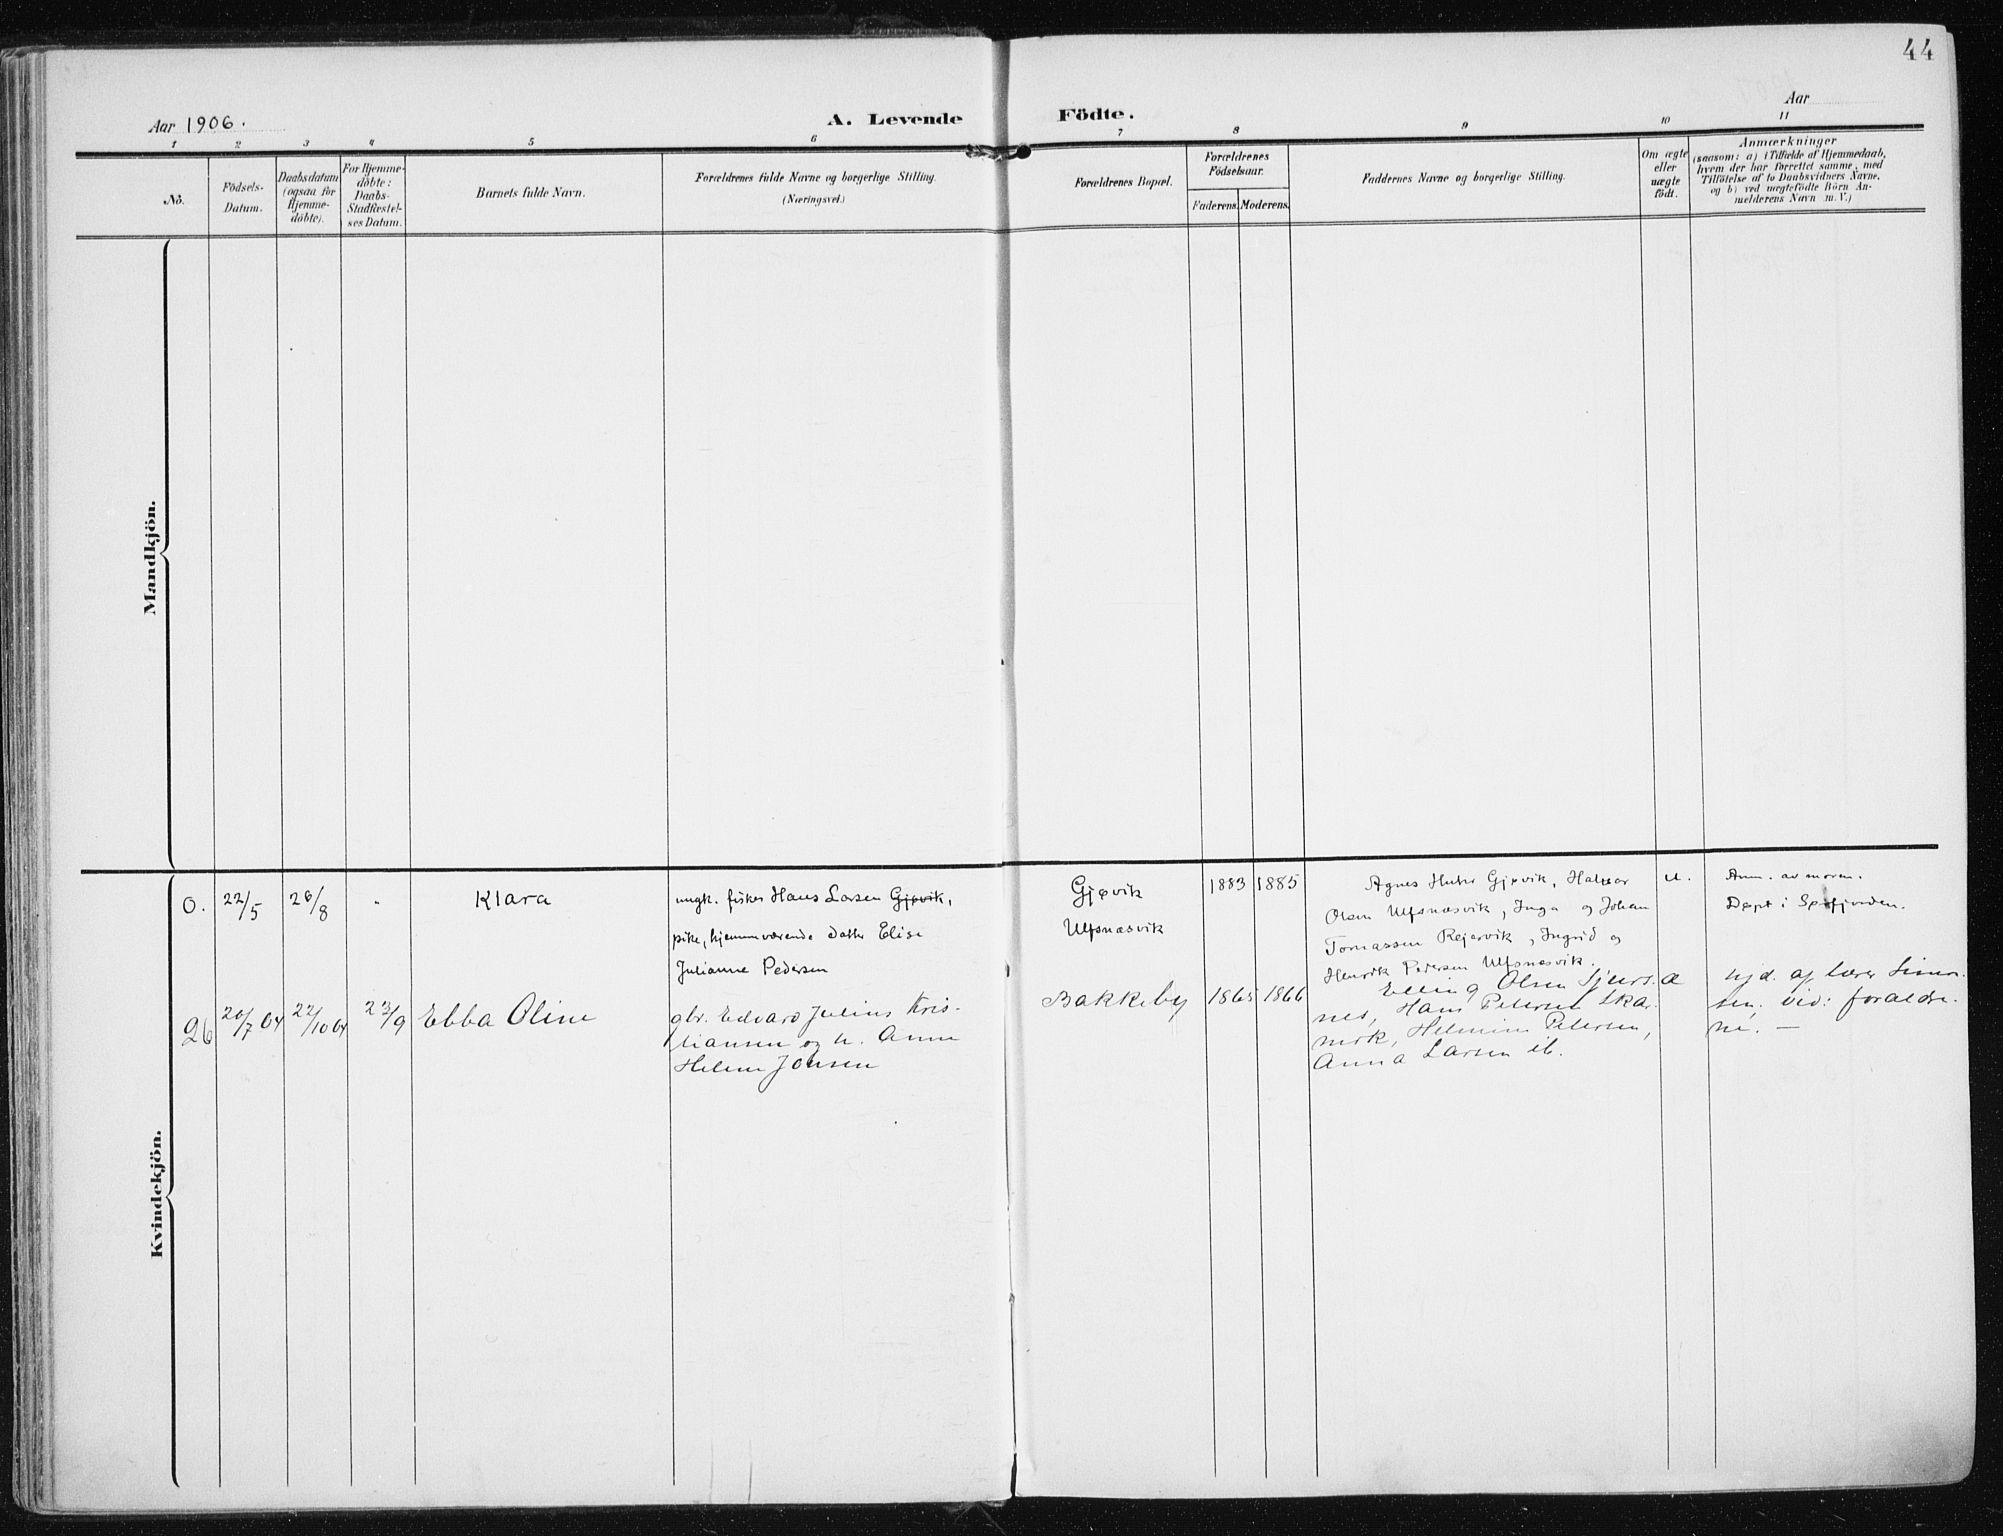 44
Aar 1906.
A. Levende Födte.
Aar
1 2 3 4 5 6 7 8 9 10 11
No.
Födsels-
Datum.
Daabsdatum
(ogsaa for
Hjemme-
döbte).
For Hjemme-
döbte:
Daabs-
Stadfæstel-
ses Datum.
Barnets fulde Navn.
Forældrenes fulde Navne og borgerlige Stilling.
(Næringsvei.)
Forældrenes Bopæl.
Forældrenes
Födselsaar.
Faderens. Moderens.
Faddernes Navne og borgerlige Stilling.
Om ægte
eller
uægte
födt.
Anmærkninger
(saasom: a) i Tilfælde af Hjemmedaab,
hvem der har forrettet samme, med
Tilföielse af to Daabsvidners Navne,
og b) ved uægtefödte Börn An-
melderens Navn m. V.)
Mandkjön.
Kvindekjön.
0.
22/5
26/8
"
Klara
ungk. fisker Hans Larsen Gjøvik,
pike, hjemmeværende datter Elise
Julianne Pedersen
Gjøvik
Ulfsnæsvik
1883
1885
Agnes Gjøvik, Halvar
Olsen Ulfsnæsvik, Inga og Johan
Tomassen Rejervik, Ingrid og
Henrik Pedersen Ulfsnæsvik.
u.
Anm. av moren.
Døpt i Sørfjorden.
26
20/7 04
22/10 04
23/9
Ebba Oline
gbr. Edvard Julius Kris-
tiansen og h. Anne
Helene Jonsen
Bakkeby
1865
1866
Elling Olsen Sjurs-
nes, Hans Petersen Ska-
mork, Helmine Petersen,
Anna Larsen ib.
æ
hjd. af lærer Simon-
sen, vid: forældre-
ne. —